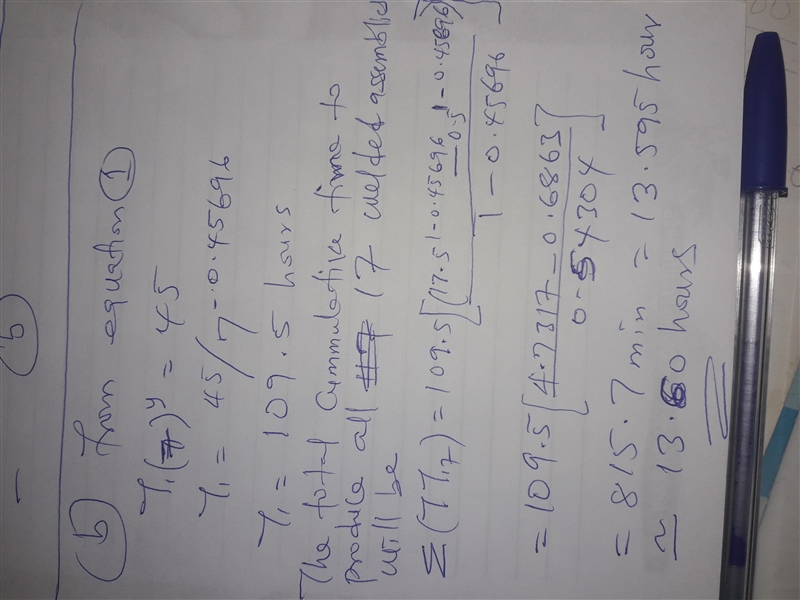 b
b From equation 1
T₁(7)^y = 45
T₁ = 45/7^-0.45696
T₁ = 109.5 hours
The total Cummulative time to
produce all 17 welded assemblies
will be
Σ(TT₁₇) = 109.5[(17.5^1-0.45696 - 0.5^1-0.45696)/1-0.45696]
= 109.5[4.7317-0.6863/0.54304]
= 815.7 min = 13.595 hour
≃ 13.60 hours